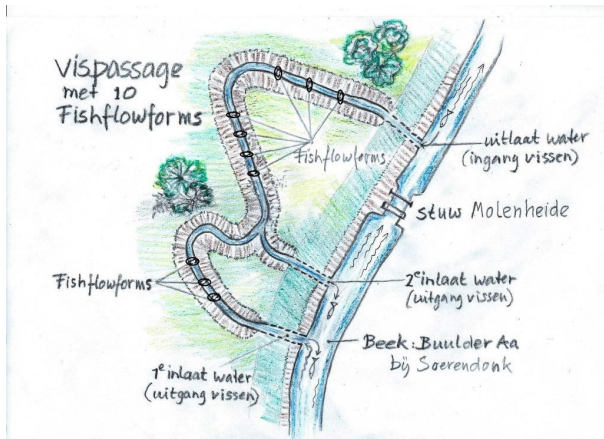 Vispassage
met 10
Fishflowforms
Fishflowforms
uitlaat water
(ingang vissen)
stuw Molenheide
Fishflowforms
2e inlaat water
(uitgang vissen)
Beek: Buulder Aa
bij Soerendonk
1e inlaat water
(uitgang vissen)